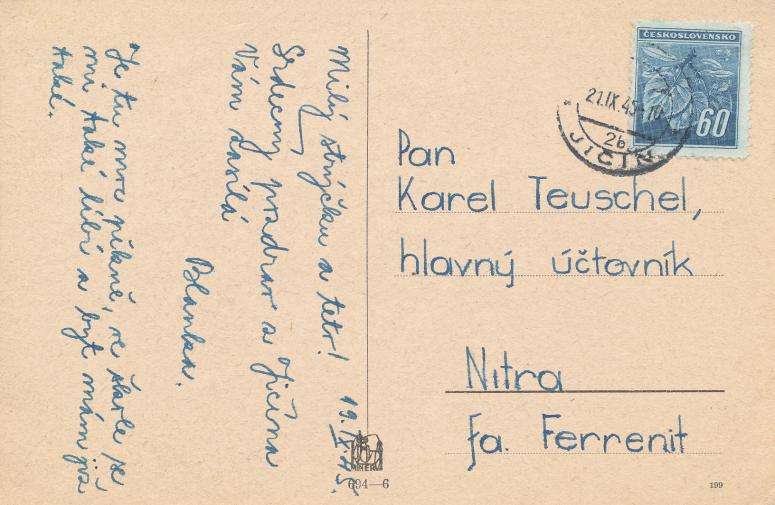 ČESKOSLOVENSKO
60
21.IX.45
2b
JIČÍN
Pan
Karel Teuschel,
hlavný účtovník
Nitra
fa. Ferrenit
19.IX.45.
Milý strýčku a teto!
Srdečný pozdrav z Jičína
Vám zasílá
Blanka.
Je tu moc pěkně, ve škole se
mi také líbí a byt mám
také.
MINERVA
694—6
199